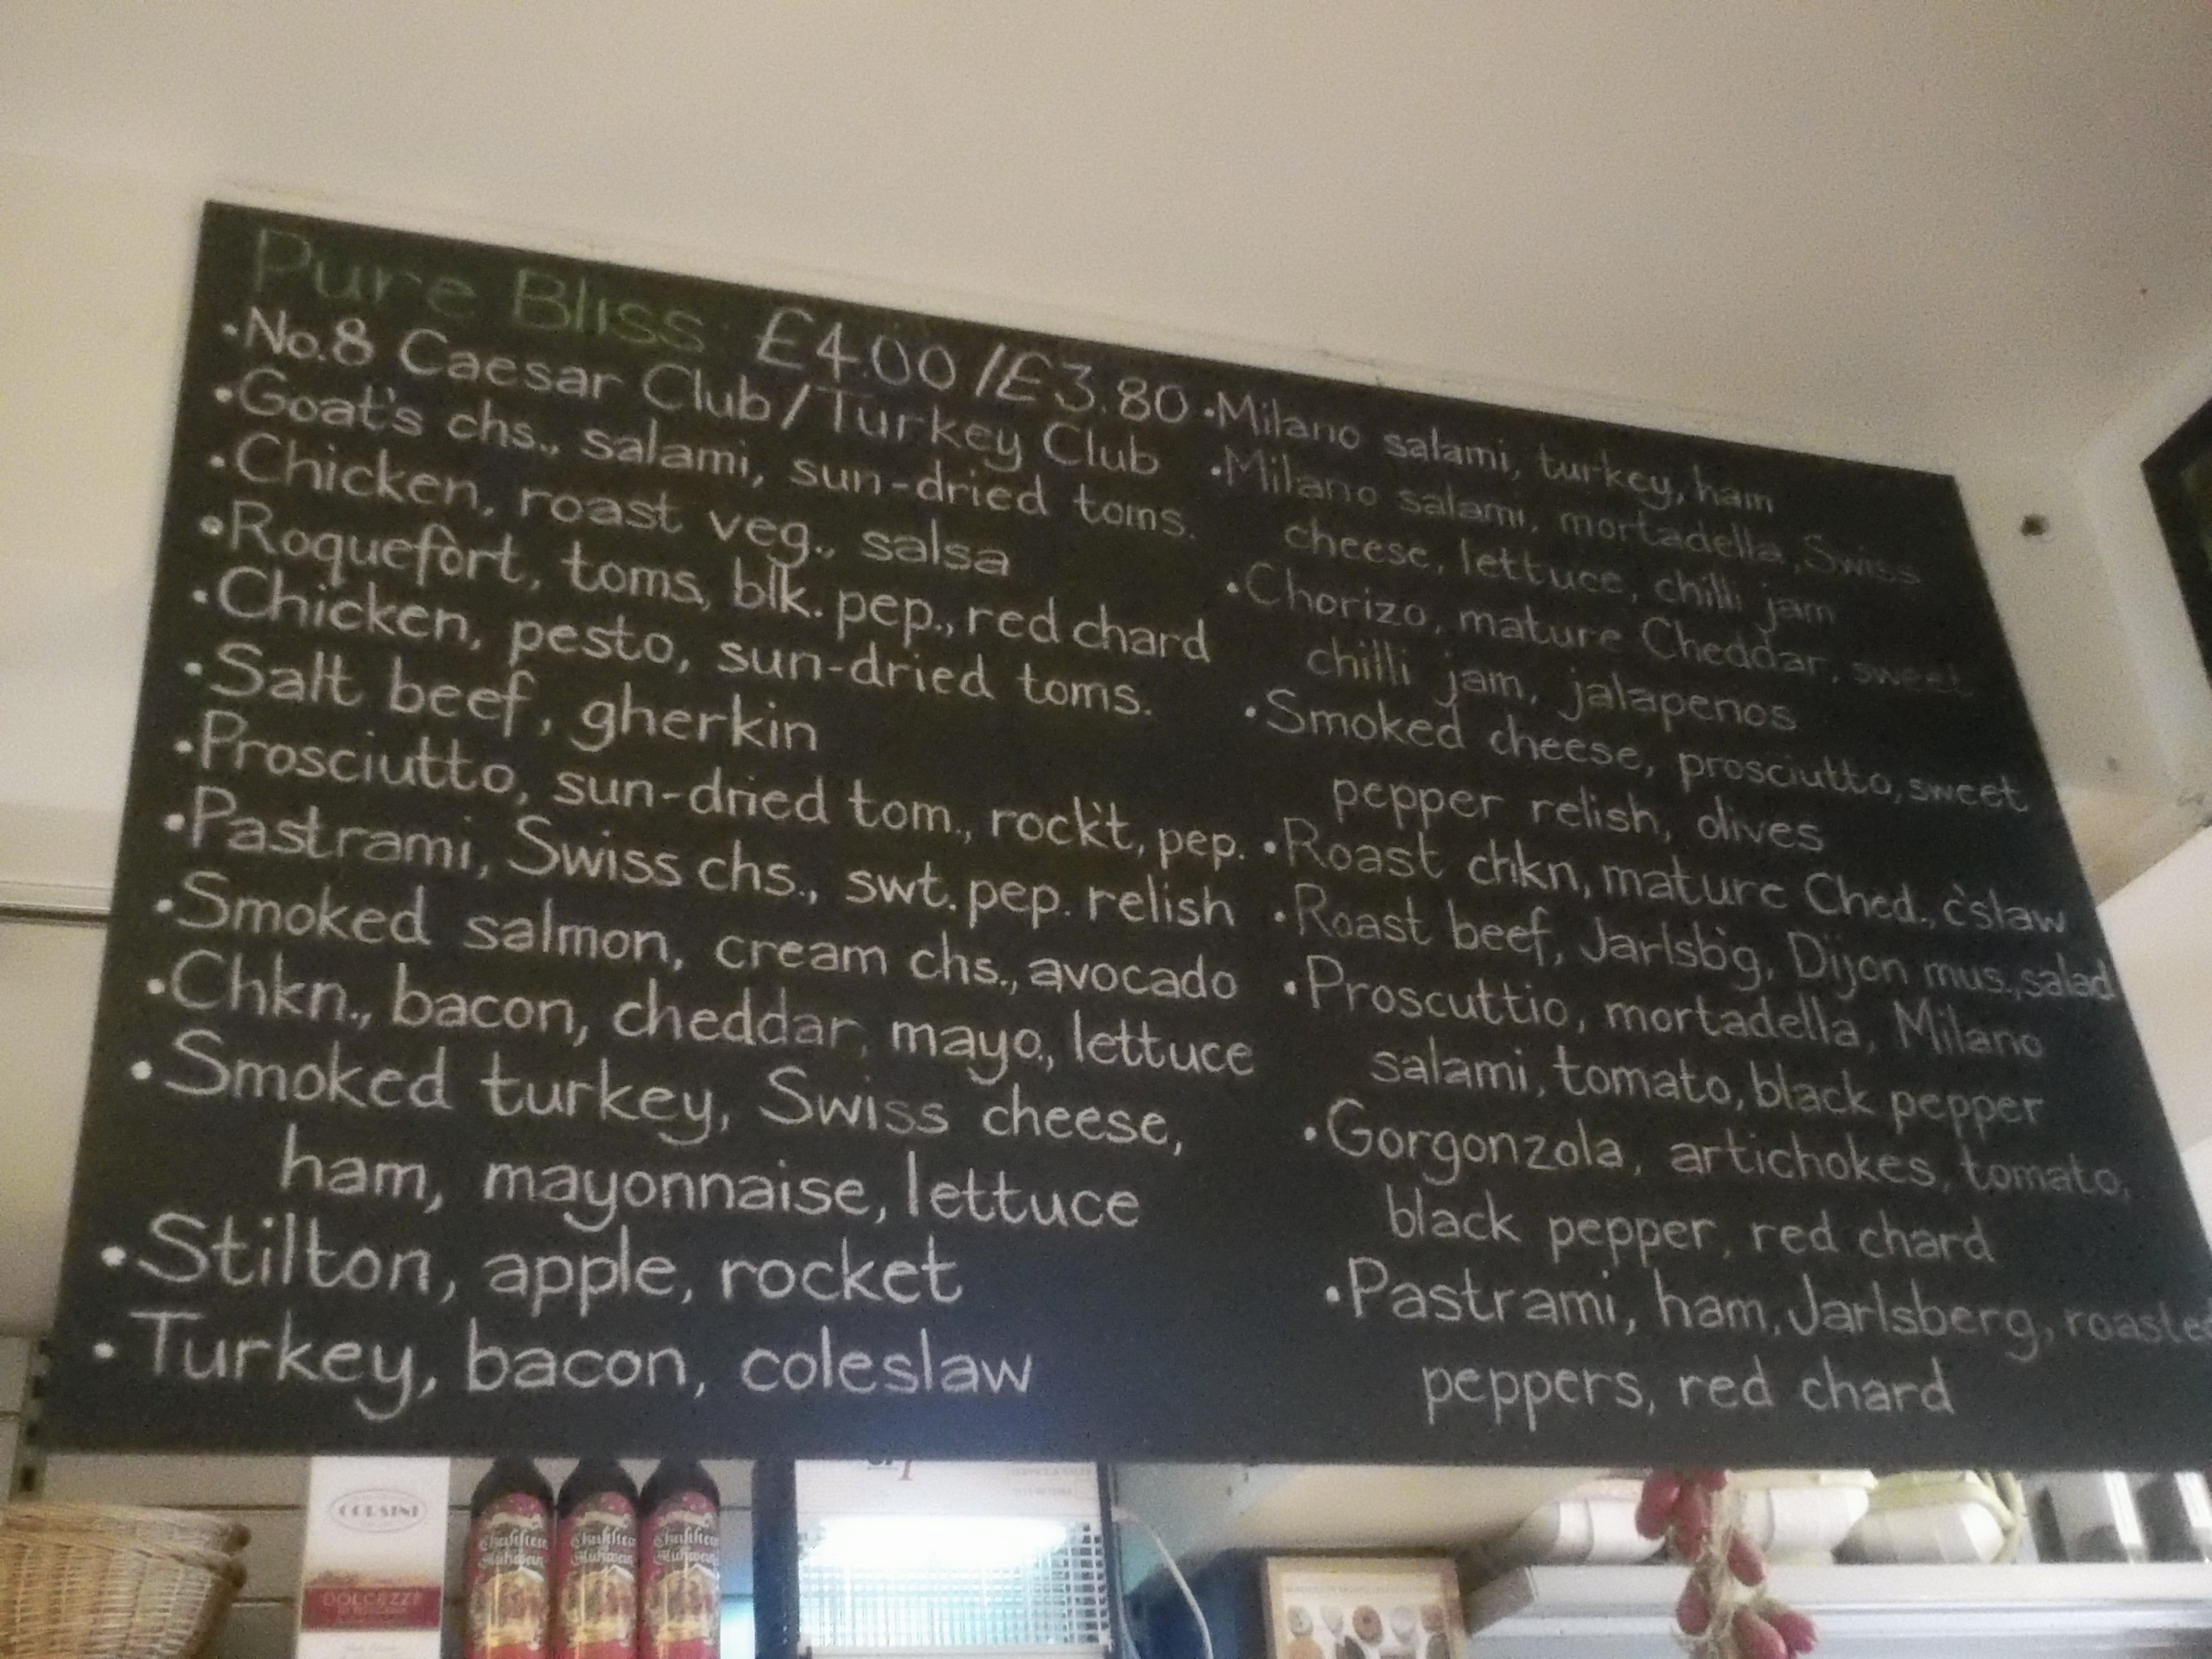 Pure Bliss £4.00/£3.80
•No.8 Caesar Club/Turkey Club
•Goat's chs., salami, sun-dried toms.
•Chicken, roast veg., salsa
•Roquefort, toms, blk. pep., red chard
•Chicken, pesto, sun-dried toms.
•Salt beef, gherkin
•Prosciutto, sun-dried tom., rock't, pep.
•Pastrami, Swiss chs., swt. pep. relish
•Smoked salmon, cream chs., avocado
•Chkn., bacon, cheddar, mayo., lettuce
•Smoked turkey, Swiss cheese,
ham, mayonnaise, lettuce
•Stilton, apple, rocket
•Turkey, bacon, coleslaw
•Milano salami, turkey, ham
•Milano salami, mortadella, Swiss
cheese, lettuce, chilli jam
•Chorizo, mature Cheddar, sweet
chilli jam, jalapenos
•Smoked cheese, prosciutto, sweet
pepper relish, olives
•Roast chkn, mature Ched., c'slaw
•Roast beef, Jarlsb'g, Dijon mus., salad
•Proscuttio, mortadella, Milano
salami, tomato, black pepper
•Gorgonzola, artichokes, tomato,
black pepper, red chard
•Pastrami, ham, Jarlsberg, roaste
peppers, red chard
CORSINI
DOLCEZZE